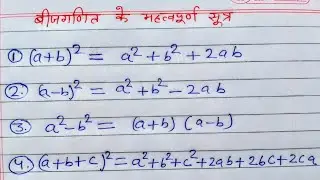 बीजगणित के महत्वपूर्ण सूत्र
① (a+b)² = a²+b²+2ab
2. (a-b)² = a²+b²-2ab
3. a²-b² = (a+b) (a-b)
4. (a+b+c)² = a²+b²+c²+2ab+2bc+2ca